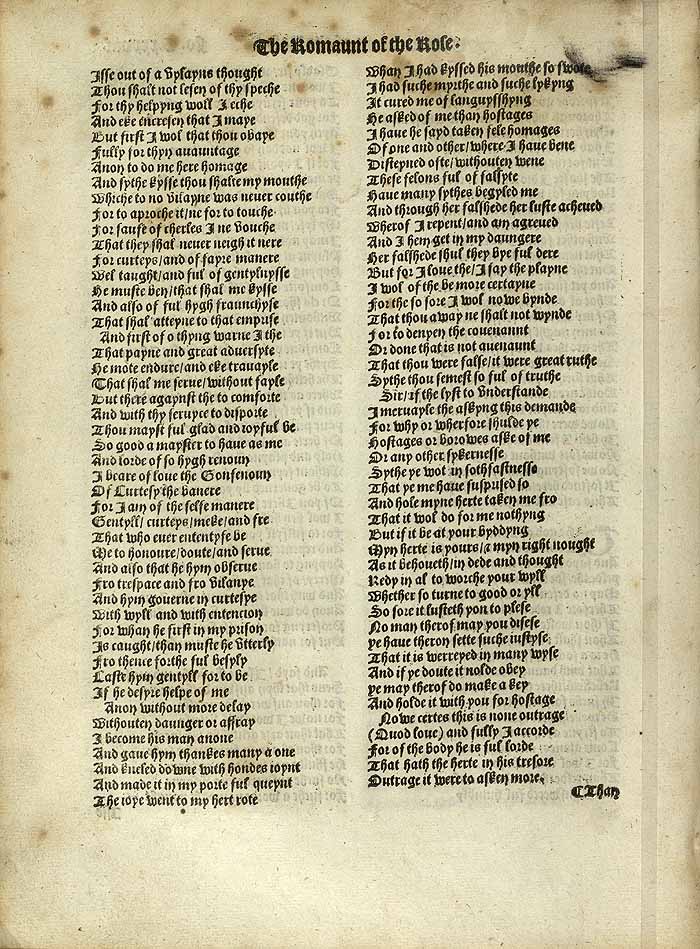 The Romaunt of the Rose.
Isse out of a vylayns thought
Thou shalt not lesen of thy speche
For thy helpyng woll I eche
And eke encresen that I maye
But first I wol that thou obaye
Fully for thyn auauntage
Anon to do me here homage
And sythe kysse thou shalte my mouthe
Whiche to no vilayne was neuer couthe
For to aproche it/ne for to touche
For saufe of cherles I ne vouche
That they shal neuer neigh it nere
For curteys/and of fayre manere
Wel taught/and ful of gentylnysse
He muste ben/that shal me kysse
And also of ful hygh fraunchyse
That shal atteyne to that emprise
And first of o thyng warne I the
That payne and great aduersyte
He mote endure/and eke trauayle
That shal me serue/without fayle
But there agaynst the to comforte
And with thy seruyce to disporte
Thou mayst ful glad and ioyful be
So good a mayster to haue as me
And lorde of so hygh renoun
I beare of loue the Gonfenoun
Of Curtesy the banere
For I am of the selfe manere
Gentyll/curteys/meke/and fre
That who euer ententyfe be
Me to honoure/doute/and serue
And also that he hym obserue
Fro trespace and fro vilanye
And hym gouerne in curtesye
With wyll and with entencion
For whan he first in my prison
Is caught/than muste he vtterly
Fro thence forthe ful besyly
Caste hym gentyll for to be
If he desyre helpe of me
Anon without more delay
Withouten daunger or affray
I become his man anone
And gaue hym thankes many a one
And kneled downe with hondes ioynt
And made it in my porte ful queynt
The ioye went to my hert rote
Whan I had kyssed his mouthe so swote
I had suche myrthe and suche lykyng
It cured me of languysshyng
He asked of me than hostages
I haue he sayd taken fele homages
Of one and other/where I haue bene
Disteyned ofte/withouten wene
These felons ful of falsyte
Haue many sythes begyled me
And through her falshede her luste acheued
Wherof I repent/and am agreued
And I hem get in my daungere
Her falshede shul they bye ful dere
But for I loue the/I say the playne
I wol of the be more certayne
For the so sore I wol nowe bynde
That thou away ne shalt not wynde
For to denyen the couenannt
Or done that is not auenaunt
That thou were false/it were great ruthe
Sythe thou semest so ful of truthe
Sir/if the lyst to vnderstande
I meruayle the askyng this demande
For why or wherfore shulde ye
Hostages or borowes aske of me
Or any other sykernesse
Sythe ye wot in sothfastnesse
That ye me haue susprised so
And hole myne herte taken me fro
That it wol do for me nothyng
But if it be at your byddyng
Myn herte is yours/& myn right nought
As it behoueth/in dede and thought
Redy in al to worche your wyll
Whether so turne to good or yll
So sore it lusteth you to plese
No man therof may you disese
ye haue theron sette suche iustyse
That it is werreyed in many wyse
And if ye doute it nolde obey
ye may therof do make a key
And holde it with you for hostage
Nowe certes this is none outrage
(Quod loue) and fully I accorde
For of the body he is ful lorde
That hath the herte in his tresore
Outrage it were to asken more.
¶Than